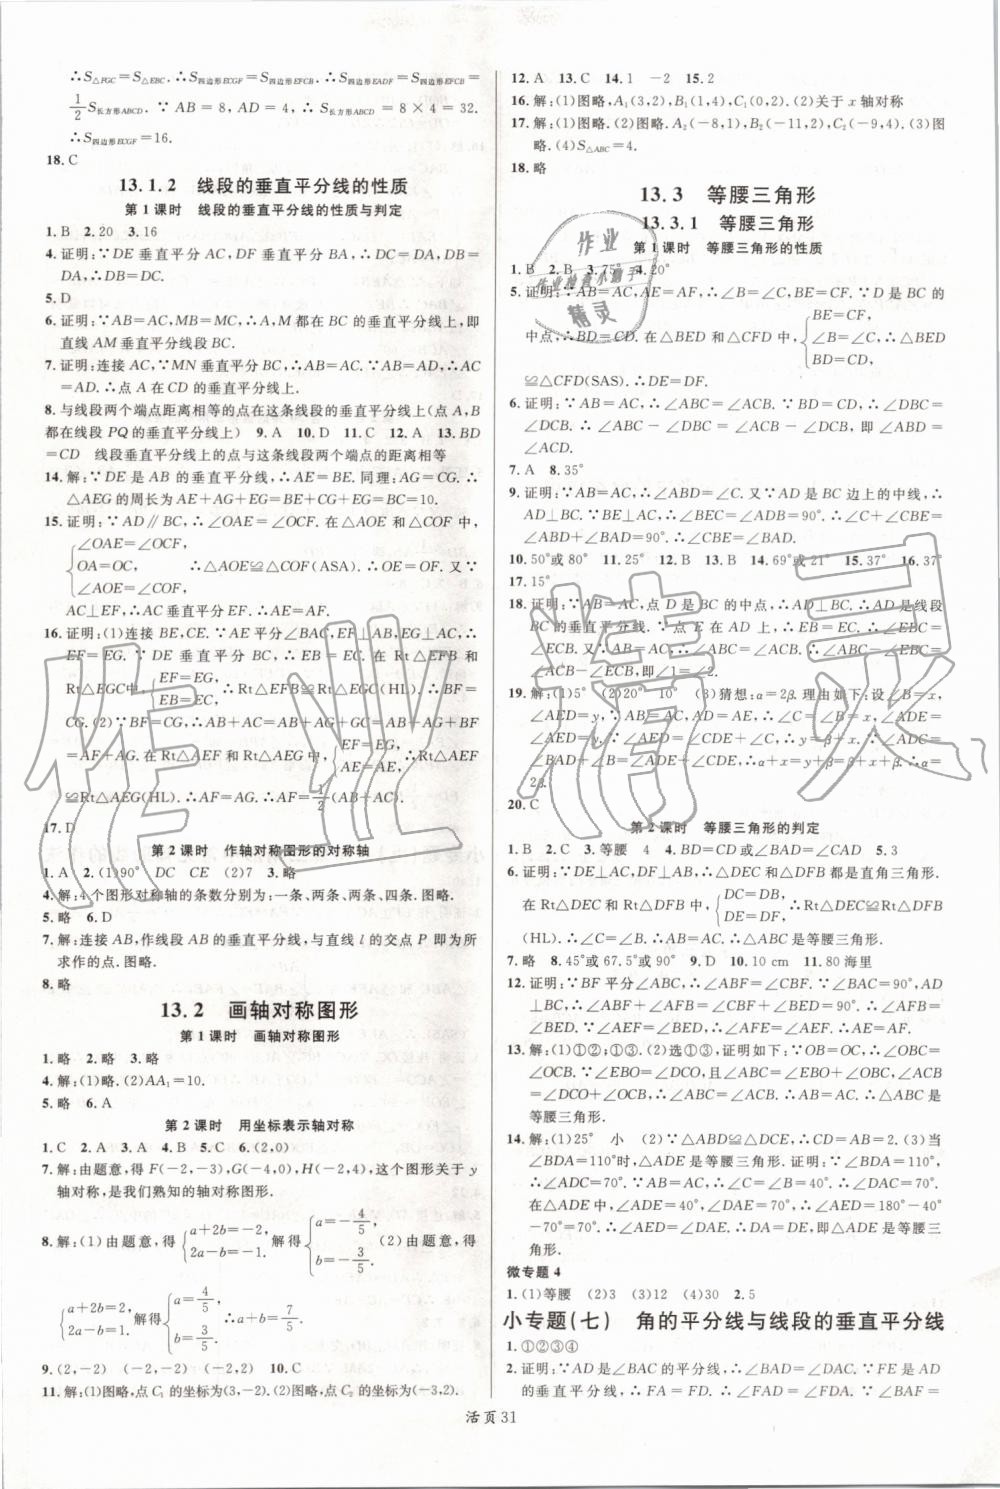 ∴S△FGC=S△EBC. ∴S四边形ECGF=S四边形EFCB. ∴S四边形EADF=S四边形EFCB=
1/2 S长方形ABCD. ∵AB=8,AD=4,∴S长方形ABCD=8×4=32.
∴S四边形ECGF=16.
18. C
13.1.2 线段的垂直平分线的性质
第1课时 线段的垂直平分线的性质与判定
1. B 2. 20 3. 16
4. 证明:∵DE垂直平分AC,DF垂直平分BA,∴DC=DA,DB=
DA. ∴DB=DC.
5. D
6. 证明:∵AB=AC,MB=MC,∴A,M都在BC的垂直平分线上,即
直线AM垂直平分线段BC.
7. 证明:连接AC,∵MN垂直平分BC,∴AB=AC. ∵AB=AD,∴AC
=AD. ∴点A在CD的垂直平分线上.
8. 与线段两个端点距离相等的点在这条线段的垂直平分线上(点A,B
都在线段PQ的垂直平分线上) 9. A 10. D 11. C 12. A 13. BD
=CD 线段垂直平分线上的点与这条线段两个端点的距离相等
14. 解:∵DE是AB的垂直平分线,∴AE=BE. 同理:AG=CG. ∴
△AEG的周长为AE+AG+EG=BE+CG+EG=BC=10.
15. 证明:∵AD∥BC,∴∠OAE=∠OCF. 在△AOE和△COF中,
{∠OAE=∠OCF,
OA=OC, ∴△AOE≌△COF(ASA). ∴OE=OF. 又∵
∠AOE=∠COF,
AC⊥EF,∴AC垂直平分EF. ∴AE=AF.
16. 证明:(1)连接BE,CE. ∵AE平分∠BAC,EF⊥AB,EG⊥AC,∴
EF=EG. ∵DE垂直平分BC,∴EB=EC. 在Rt△EFB和
Rt△EGC中,{EF=EG, EB=EC, ∴Rt△EFB≌Rt△EGC(HL). ∴BF=
CG. (2)∵BF=CG,∴AB+AC=AB+AG+CG=AB+AG+BF
=AF+AG. 在Rt△AEF和Rt△AEG中,{EF=EG, AE=AE, ∴Rt△AEF
≌Rt△AEG(HL). ∴AF=AG. ∴AF=1/2(AB+AC).
17. D
第2课时 作轴对称图形的对称轴
1. A 2. (1)90° DC CE (2)7 3. 略
4. 解:4个图形对称轴的条数分别为:一条、两条、两条、四条. 图略.
5. 略 6. D
7. 解:连接AB,作线段AB的垂直平分线,与直线l的交点P即为所
求作的点. 图略.
8. 略
13.2 画轴对称图形
第1课时 画轴对称图形
1. 略 2. 略 3. 略
4. 解:(1)略. (2)AA₁=10.
5. 略 6. A
第2课时 用坐标表示轴对称
1. C 2. A 3. A 4. B 5. C 6. (2,0)
7. 解:由题意,得F(-2,-3),G(-4,0),H(-2,4),这个图形关于y
轴对称,是我们熟知的轴对称图形.
8. 解:(1)由题意,得{a+2b=-2, 2a-b=-1. 解得{a=-4/5, b=-3/5. (2)由题意,得
{a+2b=2, 2a-b=1. 解得{a=4/5, b=3/5. ∴a+b=7/5.
9. (2,-2) (-2,-2) (-2,2) 10. C
11. 解:(1)图略,点C₁的坐标为(3,-2). (2)图略,点C₂的坐标为(-3,2).
12. A 13. C 14. 1 -2 15. 2
16. 解:(1)图略,A₁(3,2),B₁(1,4),C₁(0,2). (2)关于x轴对称
17. 解:(1)图略. (2)图略. A₂(-8,1),B₂(-11,2),C₂(-9,4). (3)图
略. (4)S△ABC=4.
18. 略
13.3 等腰三角形
13.3.1 等腰三角形
第1课时 等腰三角形的性质
1. B 2. B 3. 75° 4. 20°
5. 证明:∵AB=AC,AE=AF,∴∠B=∠C,BE=CF. ∵D是BC的
中点,∴BD=CD. 在△BED和△CFD中,{BE=CF, ∠B=∠C, ∴△BED BD=CD,
≌△CFD(SAS). ∴DE=DF.
6. 证明:∵AB=AC,∴∠ABC=∠ACB. ∵BD=CD,∴∠DBC=
∠DCB. ∴∠ABC-∠DBC=∠ACB-∠DCB,即∠ABD=
∠ACD.
7. A 8. 35°
9. 证明:∵AB=AC,∴∠ABD=∠C. 又∵AD是BC边上的中线,∴
AD⊥BC. ∵BE⊥AC,∴∠BEC=∠ADB=90°. ∴∠C+∠CBE=
∠ABD+∠BAD=90°. ∴∠CBE=∠BAD.
10. 50°或80° 11. 25° 12. B 13. B 14. 69°或21° 15. 37° 16. 37°
17. 15°
18. 证明:∵AB=AC,点D是BC的中点,∴AD⊥BC. ∴AD是线段
BC的垂直平分线. ∵点E在AD上,∴EB=EC. ∴∠EBC=
∠ECB. 又∵AB=AC,∴∠ABC=∠ACB. ∴∠ABC-∠EBC=
∠ACB-∠ECB,即∠1=∠2.
19. 解:(1)5° (2)20° 10° (3)猜想:α=2β. 理由如下:设∠B=x,
∠AED=y,∵AB=AC,AD=AE,∴∠C=∠B=x,∠ADE=
∠AED=y. ∵∠AED=∠CDE+∠C,∴y=β+x. ∵∠ADC=
∠BAD+∠B=∠ADE+∠CDE,∴α+x=y+β=β+x+β. ∴α=
2β.
20. C
第2课时 等腰三角形的判定
1. B 2. C 3. 等腰 4 4. BD=CD或∠BAD=∠CAD 5. 3
6. 证明:∵DE⊥AC,DF⊥AB,∴△DEC和△DFB都是直角三角形.
在Rt△DEC和Rt△DFB中,{DC=DB, DE=DF, ∴Rt△DEC≌Rt△DFB
(HL). ∴∠B=∠C. ∴AB=AC. ∴△ABC是等腰三角形.
7. 略 8. 45°或67.5°或90° 9. D 10. 10 cm 11. 80海里
12. 证明:∵BF平分∠ABC,∴∠ABF=∠CBF. ∵∠BAC=90°,AD
⊥BC,∴∠ABF+∠AFB=∠CBF+∠BED=90°. ∴∠AFB=
∠BED. ∵∠AEF=∠BED,∴∠AFE=∠AEF. ∴AE=AF.
13. 解:(1)①②;①③. (2)选①③,证明如下:∵OB=OC,∴∠OBC=
∠OCB. ∵∠EBO=∠DCO,且∠ABC=∠EBO+∠OBC,∠ACB=
∠DCO+∠OCB,∴∠ABC=∠ACB. ∴AB=AC. ∴△ABC是
等腰三角形.
14. 解:(1)25° 小 (2)∵△ABD≌△DCE,∴CD=AB=2. (3)当
∠BDA=110°时,△ADE是等腰三角形. 证明:∵∠BDA=110°,
∴∠ADC=70°. ∵AB=AC,∴∠C=∠B=40°. ∴∠DAC=70°.
在△ADE中,∠ADE=40°,∠DAE=70°,∴∠AED=180°-40°
-70°=70°. ∴∠AED=∠DAE. ∴DA=DE,即△ADE是等腰三
角形.
微专题4
1. (1)等腰 (2)3 (3)12 (4)30 2. 5
小专题(七) 角的平分线与线段的垂直平分线
1. ①②③④
2. 证明:∵AD是∠BAC的平分线,∴∠BAD=∠DAC. ∵FE是AD
的垂直平分线,∴FA=FD. ∴∠FAD=∠FDA. ∵∠BAF=
活页31
作业
作业检查小助手
精灵
作业精灵